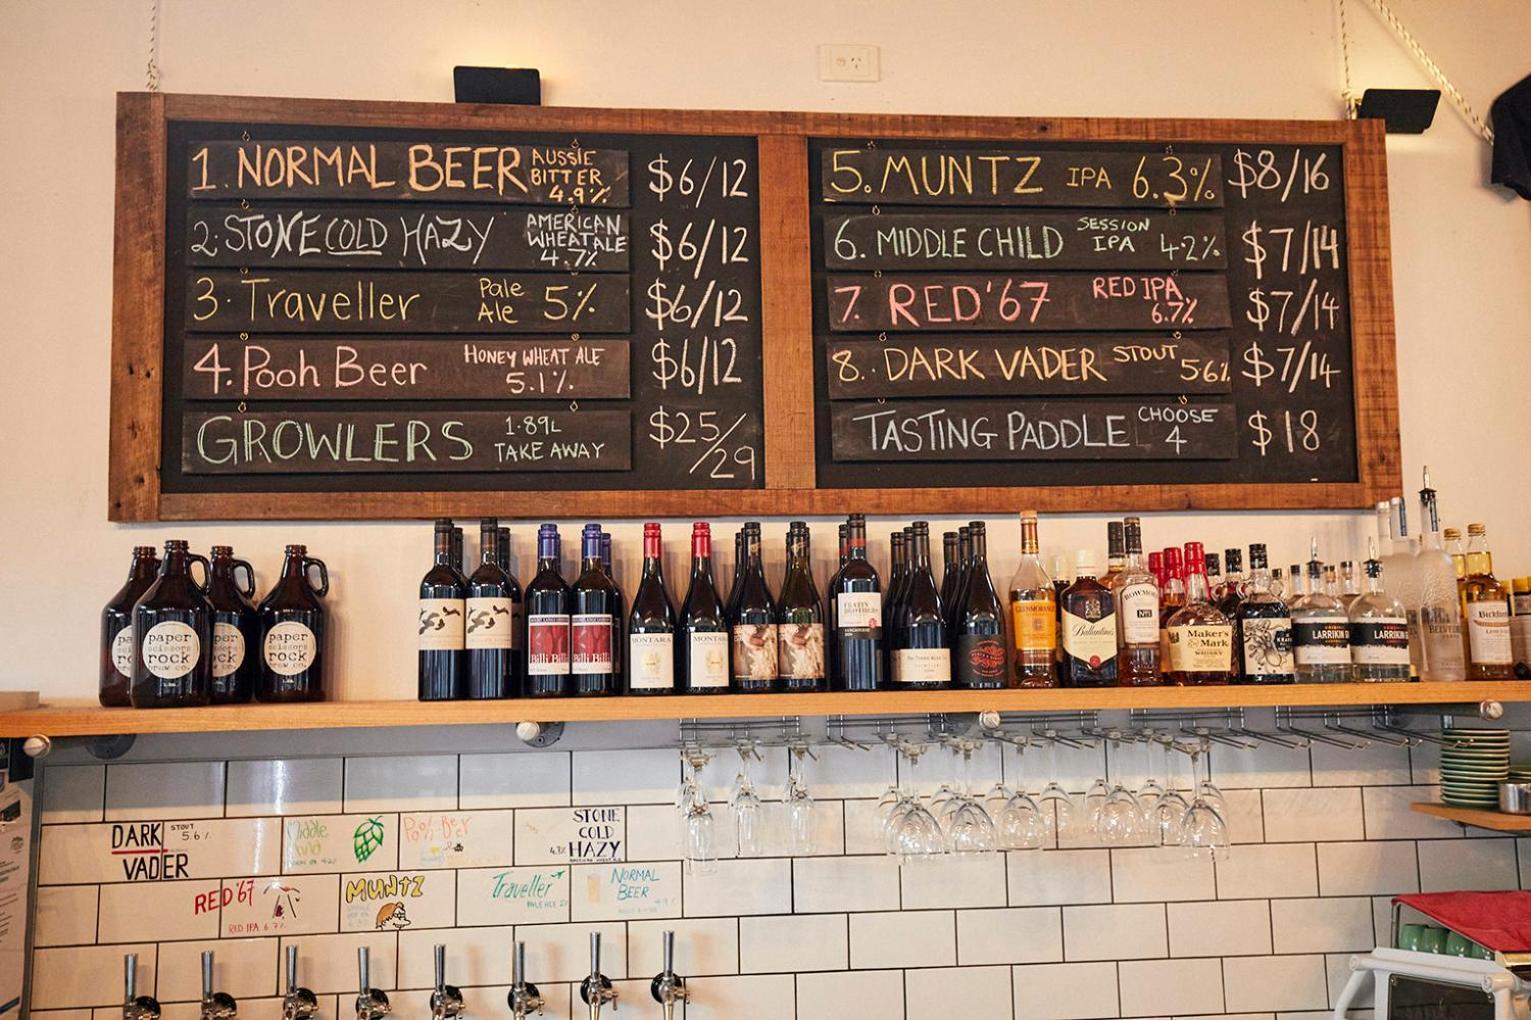 1. NORMAL BEER AUSSIE BITTER 4.9% $6/12
2. STONE COLD HAZY AMERICAN WHEAT ALE 4.7% $6/12
3. Traveller Pale Ale 5% $6/12
4. Pooh Beer HONEY WHEAT ALE 5.1% $6/12
GROWLERS 1.89L TAKE AWAY $25/29
5. MUNTZ IPA 6.3% $8/16
6. MIDDLE CHILD SESSION IPA 4.2% $7/14
7. RED '67 RED IPA 6.7% $7/14
8. DARK VADER STOUT 5.6% $7/14
TASTING PADDLE CHOOSE 4 $18
paper
scissors
rock
BREW CO.
paper
scissors
rock
BREW CO.
Billi Billi
MONTARA
MONTARA
GLENMORANGIE
Ballantine's
BOWMORE
Nº1
Maker's
Mark
WHISKY
KRAKEN
LARRIKIN
LARRIKIN
BELVEDERE
DARK
VADER
STOUT
5.6%
Middle
Pooh Beer
STONE
COLD
HAZY
4.7%
AMERICAN WHEAT ALE
RED '67
RED IPA 6.7%
MUNTZ
Traveller
PALE ALE 5%
NORMAL
BEER